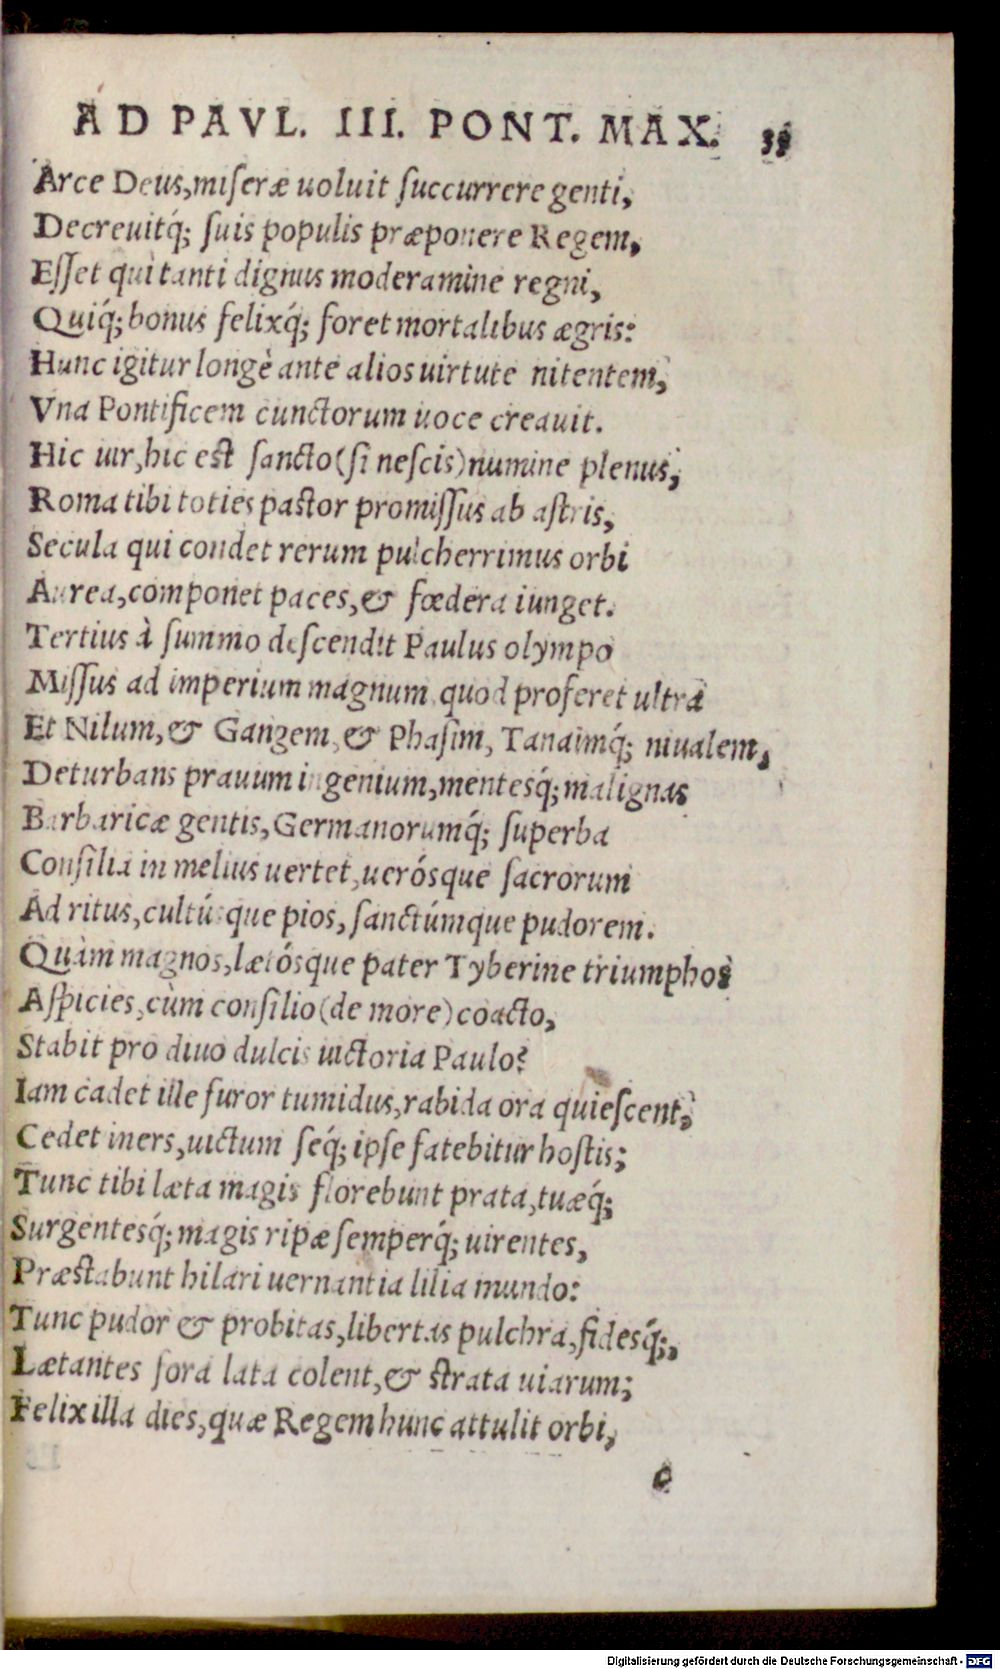 AD PAVL. III. PONT. MAX. 33
Arce Deus, miseræ uoluit succurrere genti,
Decreuitq́; suis populis præponere Regem,
Esset qui tanti dignus moderamine regni,
Quiq́; bonus felixq́; foret mortalibus ægris:
Hunc igitur longè ante alios uirtute nitentem,
Vna Pontificem cunctorum uoce creauit.
Hic uir, hic est sancto (si nescis) numine plenus,
Roma tibi toties pastor promissus ab astris,
Secula qui condet rerum pulcherrimus orbi
Aurea, componet paces, & fœdera iunget.
Tertius à summo descendit Paulus olympo
Missus ad imperium magnum, quod proferet ultrà
Et Nilum, & Gangem, & Phasim, Tanaimq́; niualem,
Deturbans prauum ingenium, mentesq́; malignas
Barbaricæ gentis, Germanorumq́; superba
Consilia in melius uertet, uerósque sacrorum
Ad ritus, cultúsque pios, sanctúmque pudorem.
Quàm magnos, lætósque pater Tyberine triumphos
Aspicies, cùm consilio (de more) coacto,
Stabit pro diuo dulcis uictoria Paulo?
Iam cadet ille furor tumidus, rabida ora quiescent,
Cedet iners, uictum seq́; ipse fatebitur hostis;
Tunc tibi læta magis florebunt prata, tuæq́;
Surgentesq́; magis ripæ semperq́; uirentes,
Præstabunt hilari uernantia lilia mundo:
Tunc pudor & probitas, libertas pulchra, fidesq́;,
Lætantes fora lata colent, & strata uiarum;
Felix illa dies, quæ Regem hunc attulit orbi,
Digitalisierung gefördert durch die Deutsche Forschungsgemeinschaft - DFG